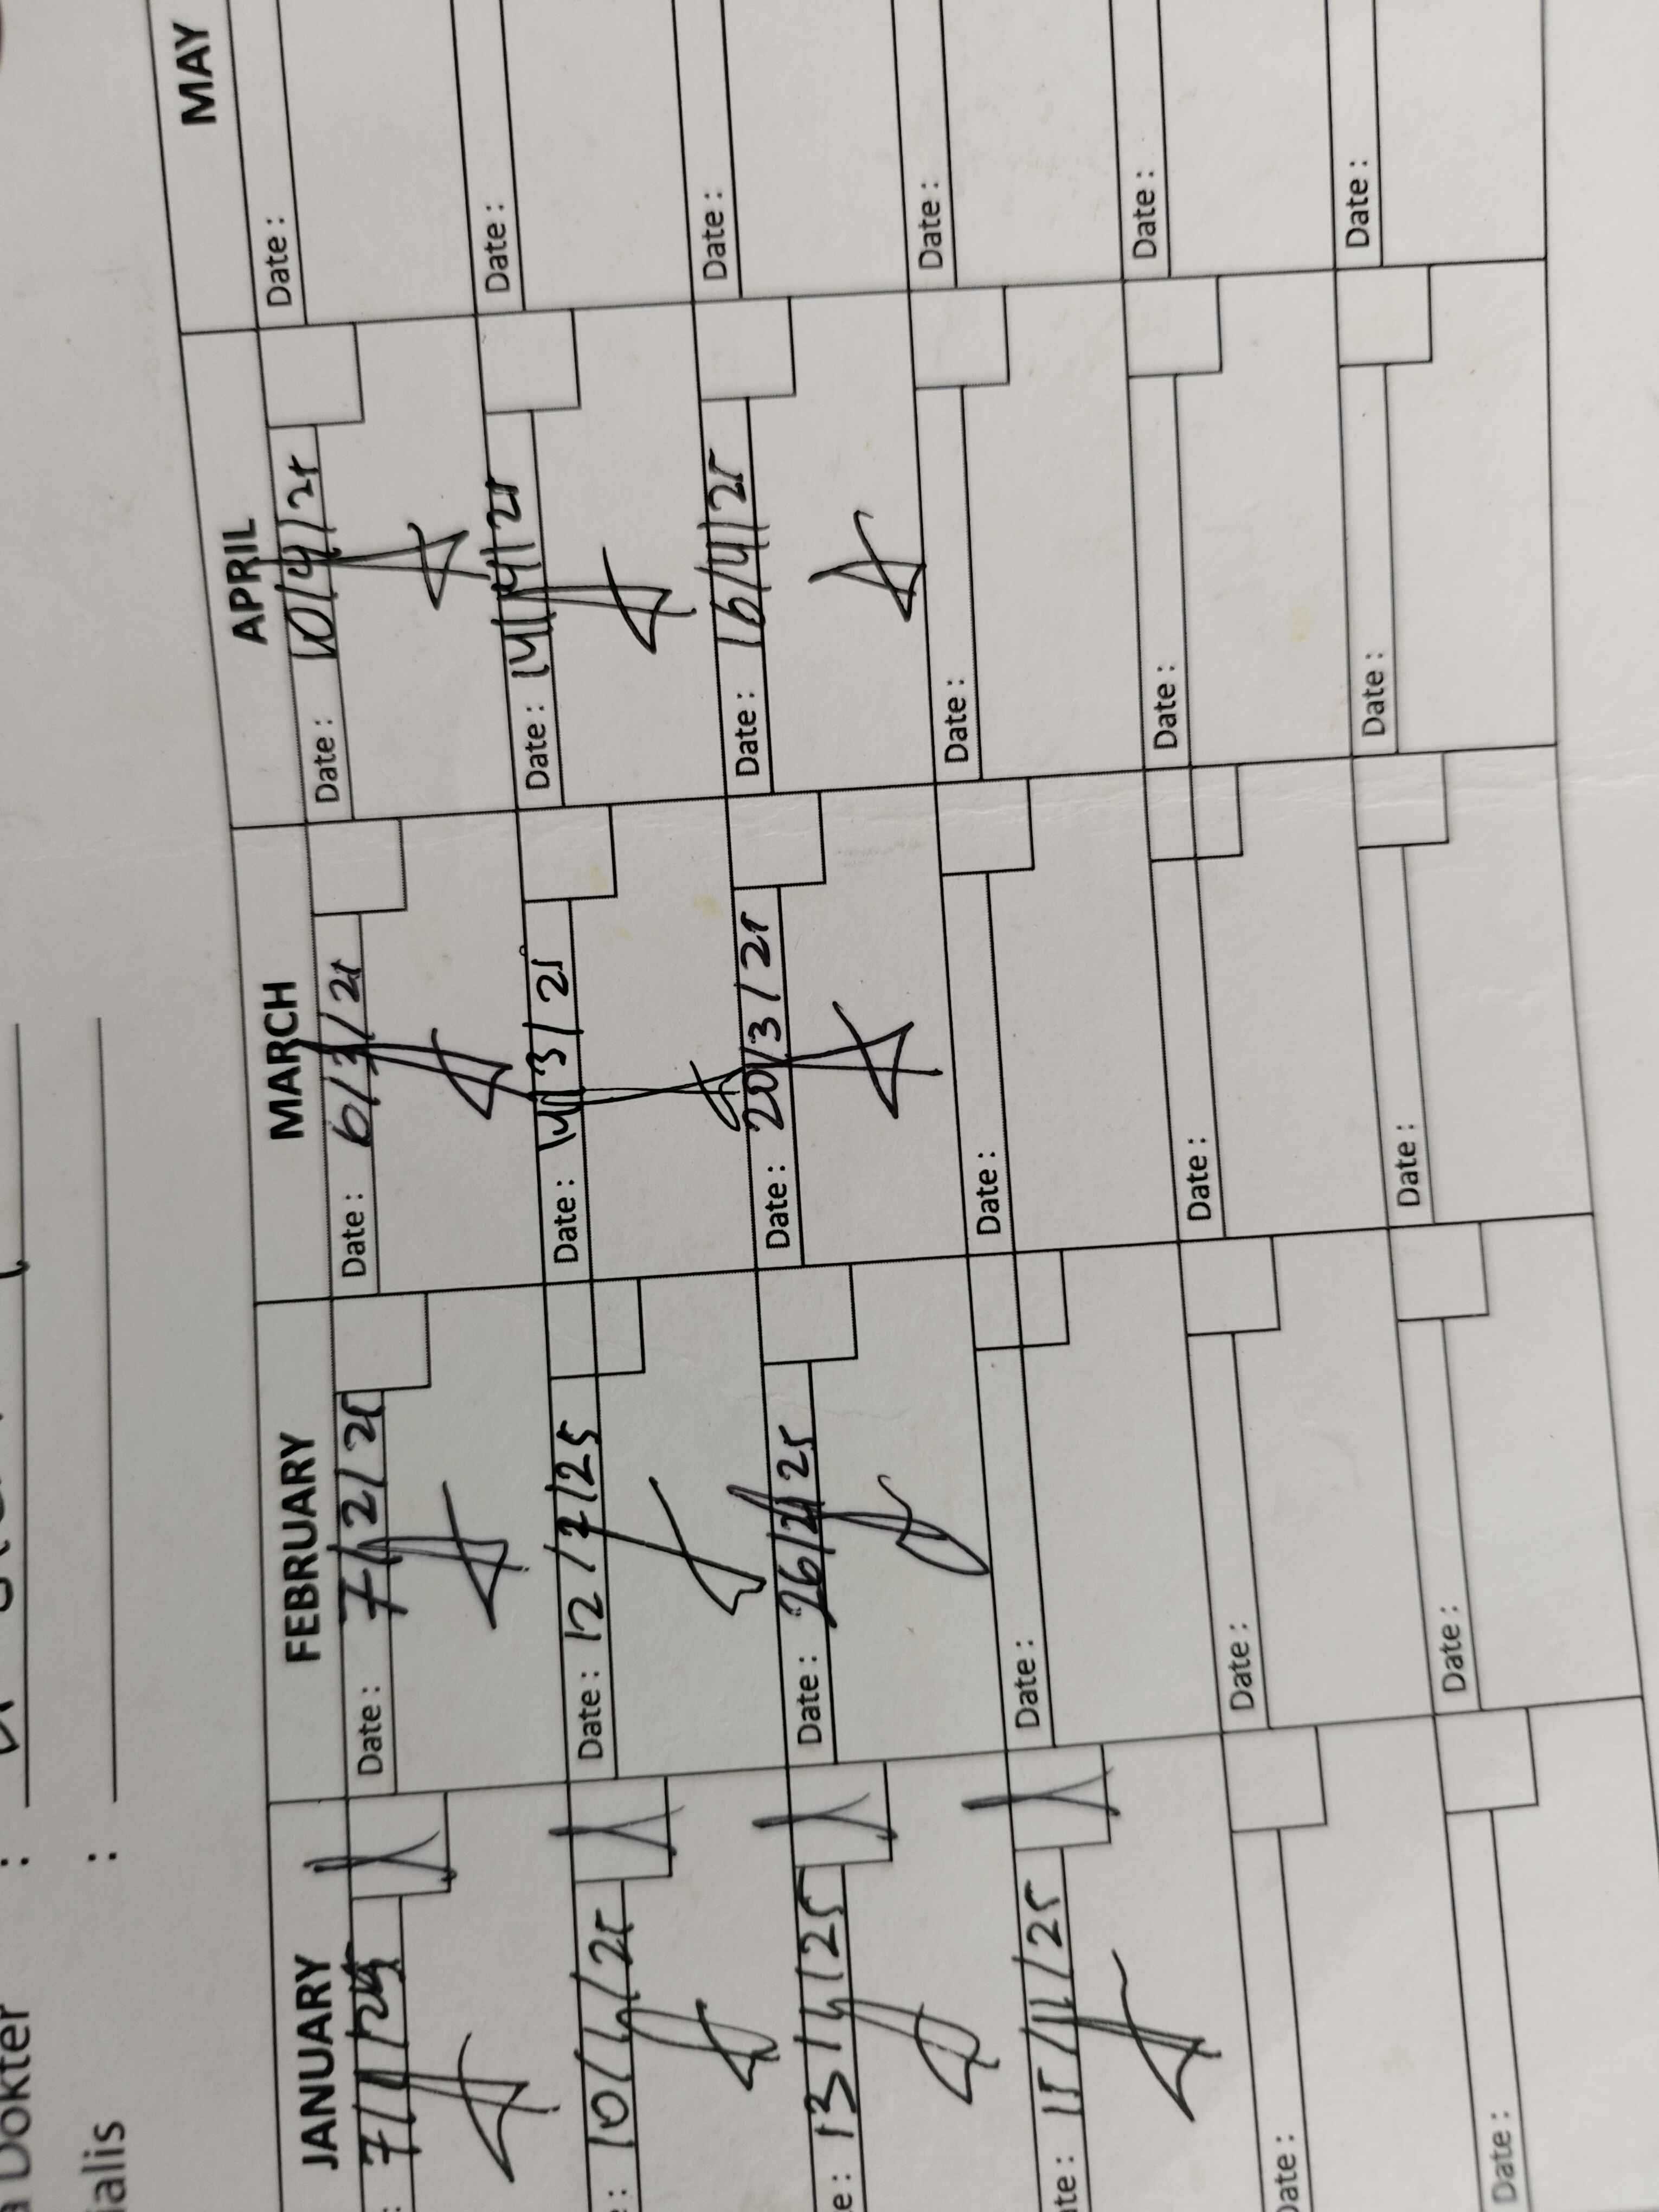 Dokter :
ialis :
JANUARY FEBRUARY MARCH APRIL MAY
: 7/1/25 Date : 7/2/25 Date : 6/3/25 Date : 10/4/25 Date :
: 10/1/25 Date : 12/2/25 Date : 14/3/25 Date : 14/4/25 Date :
e : 13/1/25 Date : 26/2/25 Date : 20/3/25 Date : 16/4/25 Date :
te : 15/1/25 Date : Date : Date : Date :
Date : Date : Date : Date : Date :
Date : Date : Date : Date : Date :